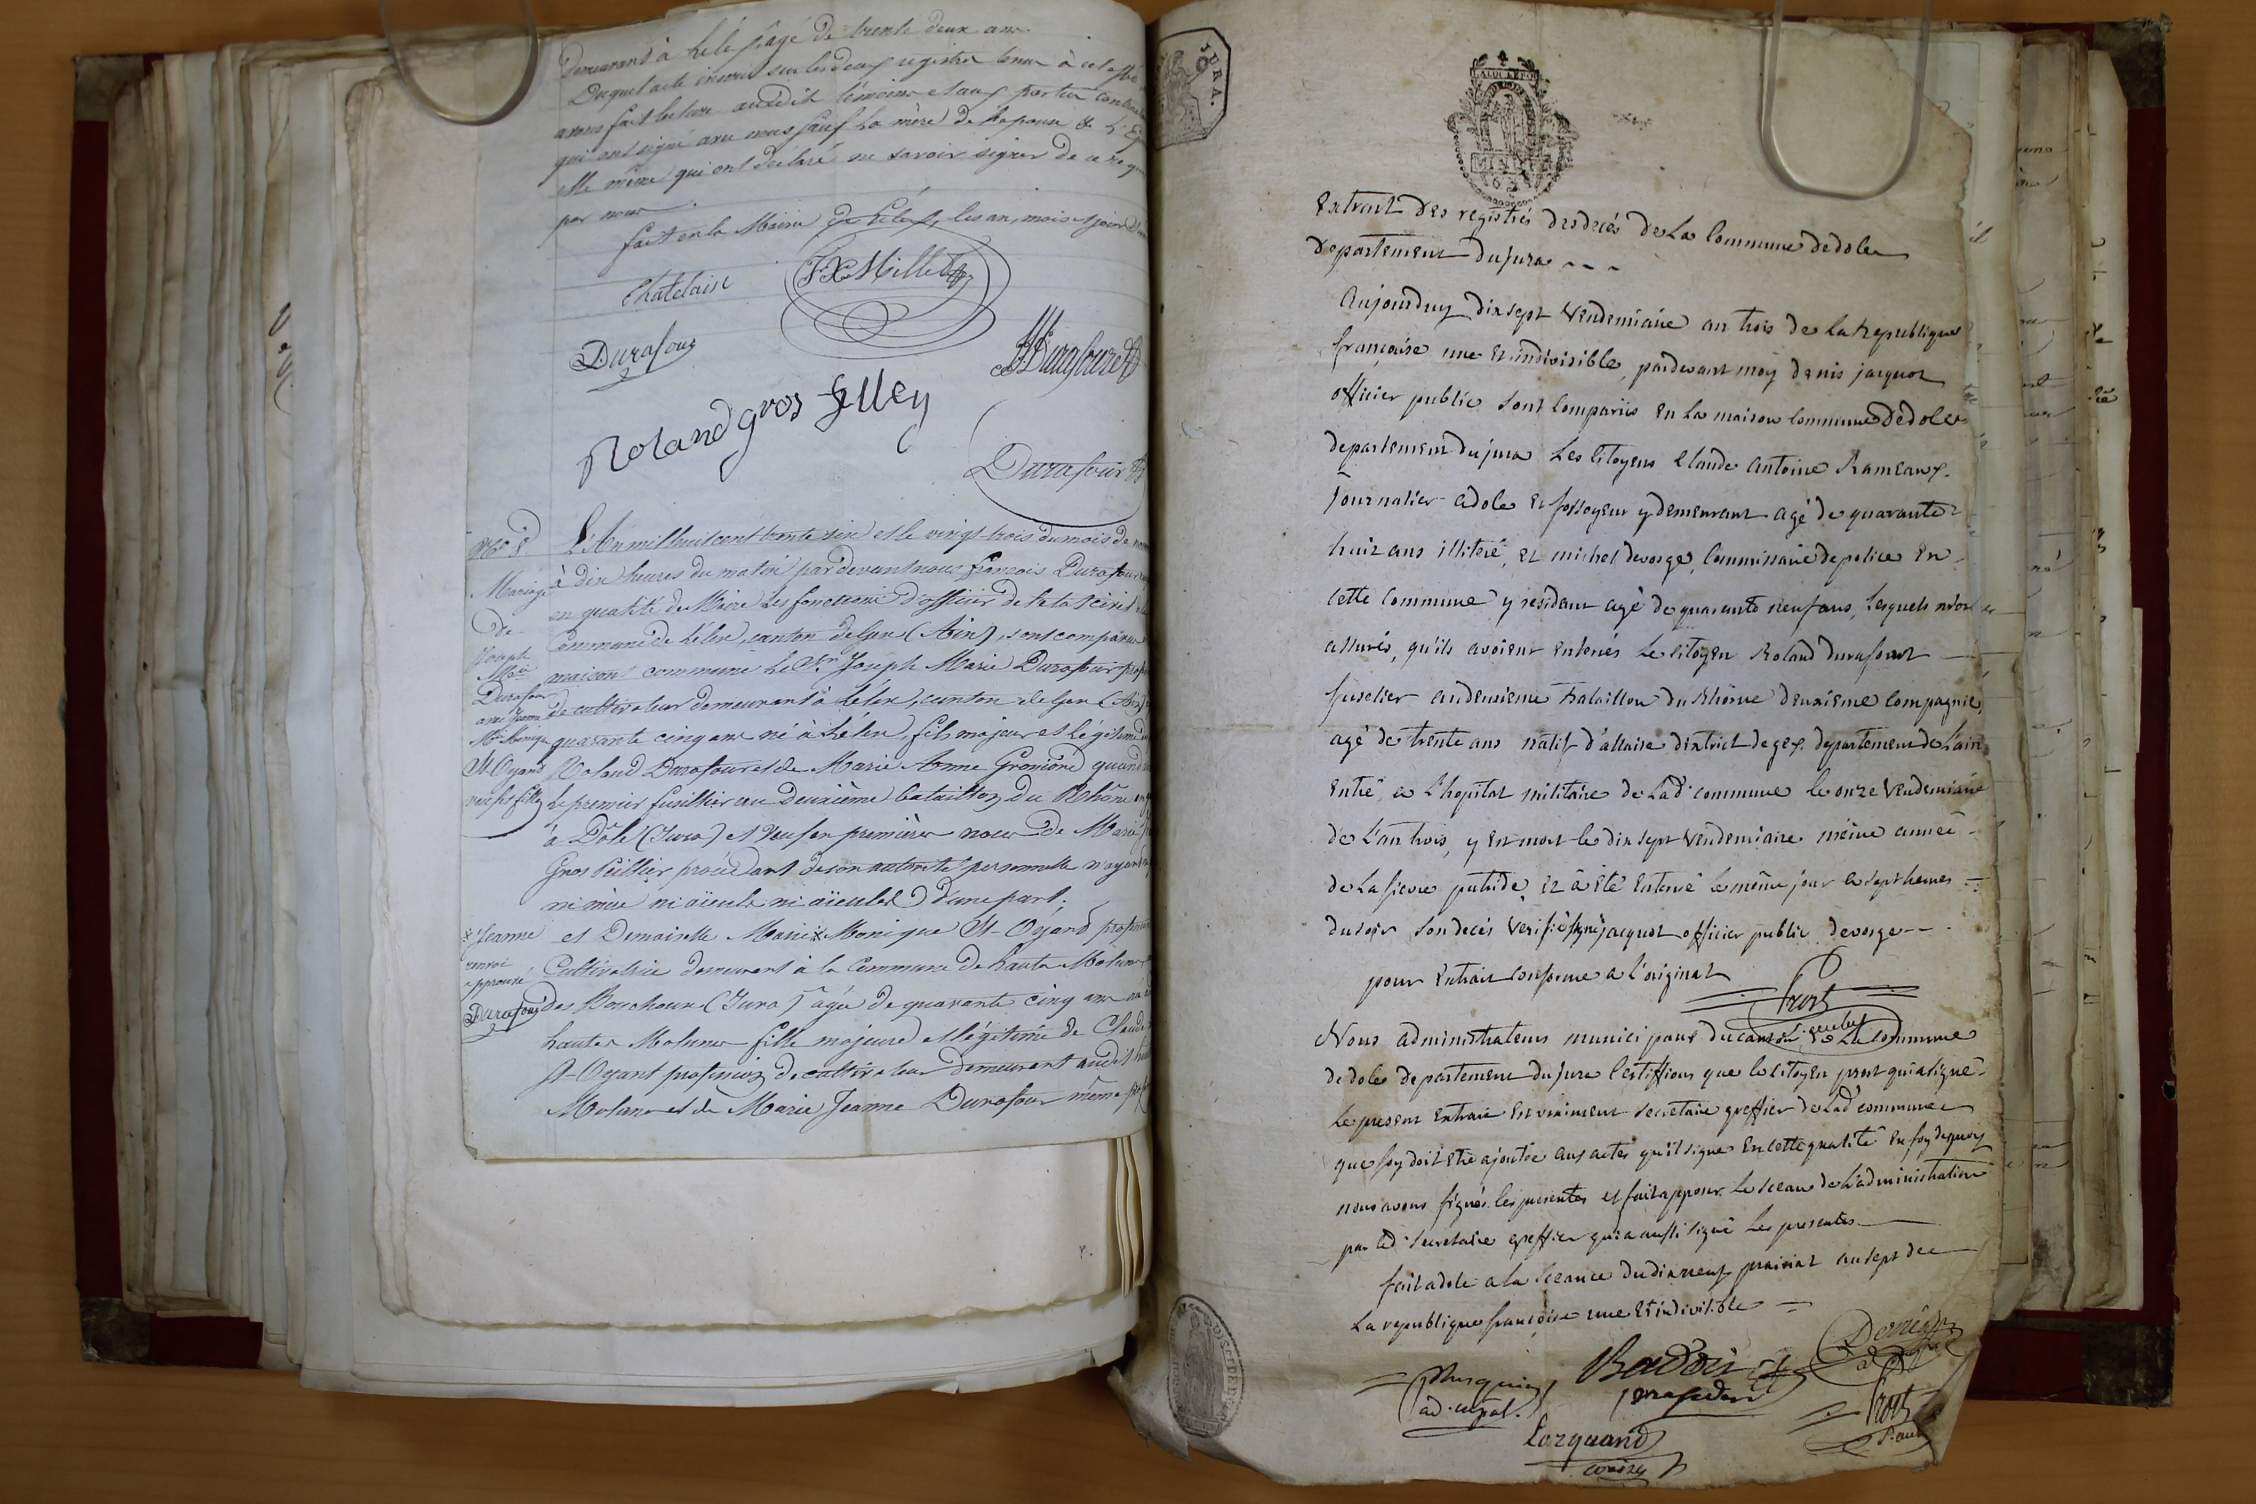 demeurant à Lélé âgé de trente deux ans.
Duquel acte inscrit sur les deux registres tenus à cet effet
avons fait lecture audit témoins et aux parties
qui ont signé avec nous sauf la mère de l'époux &
elle même qui ont declaré ne savoir signer de ce
par nous.
fait en la Mairie de Lélex, les an, mois et jour
Chatelain
FX Millet
Durafour
Durafour
Roland gros felley
Durafour
No 8
Mariage
de
Joseph
Mie
Durafour
avec Jeanne
Mie Monique
St-Oyand
L'An mil huit cent trente six et le vingt-trois du mois de
à dix heures du matin par devant nous françois Durafour
en qualité de Maire les fonctions d'officier de l'état civil
Commune de Lélex, canton de Gex (Ain), sont comparus
maison commune le Sr. Joseph Marie Durafour
de cultivateur demeurant à Lélex, canton de Gex (Ain)
quarante cinq ans né à Lélex, fils majeur et légitime
Roland Durafour et de Marie Anne Grosiord quand
le premier fusillier au deuxième bataillon du Rhône
à Dôle (Jura) et veuf en premières noces de Marie
Gros Peillier procédant de son autorité personnelle n'ayant
ni mère ni aïeuls ni aïeules d'une part;
et Demoiselle Marie x Monique St-Oyand
x Jeanne
renvoi
approuvé
Durafour
Cultivatrice demeurant à la Commune de hautes Molunes
des Bouchoux (Jura) âgée de quarante cinq ans
hautes Molunes fille majeure et légitime de Claude
St-Oyant profession de cultivateur demeurant audit
Molunes et de Marie Jeanne Durafour même
JURA.
LA LOI LE ROI
Extrait des registrés des decés de La Commune de dole
departement du jura
Aujourduy dix sept Vendemiaire an trois de la Republique
françaisé une et indivisible, pardevant moy denis jacquot
officier public sont Compariis En La maison Commune de dole
departement du jura Les Citoyens Claude Antoine Rameaux
Journalier a dole Et fossoyeur y demeurant agé de quarante
huit ans illiteré, Et michel devorge, Commissaire de police En
cette Commune y residant agé de quarente neuf ans, lesquels m'ont
assurés, qu'ils avoient Enterrés Le Citoyen Roland durafour
fuselier au deuxieme Bataillon du Rhône deuxiéme Compagnie,
agé de trente ans natif d'allaise district de gex departement de L'ain
Entré a L'hopital militaire de Lad. commune le onze Vendemiaire
de L'an trois, y Est mort le dix sept Vendemiaire même année
de La fievre putride, Et à Eté Enterré le même jour a sept heures
du soir son decés verifié signé jacquot officier public devorge
pour Extrait Conforme a l'original
Prost
Nous administrateurs municipaux du canton de La commune
de dole departement du jura Certiffions que le Citoyen prost qui a signé
le present Extrait Est vraiment secretaire greffier de Lad commune
que foy doit Etre ajoutée aux actes qu'il signe En cette qualité En foy de quoy
nous avons signés les presentes et fait apposer Le sceau de L'administration
par led. secretaire greffier qui a aussi signé Les presentes
fait a dole a la sceance du dix neuf prairial an sept de
La republique françoise une Et indivisible
ad. mpal.
president
Prost